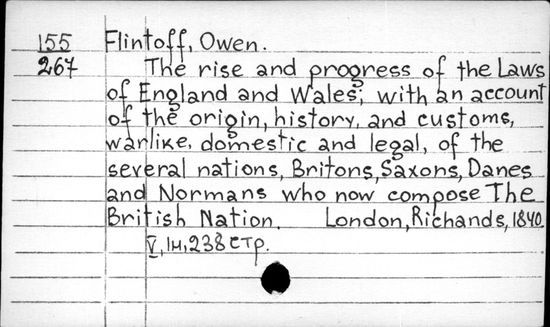 155 Flintoff, Owen.
267 The rise and progress of the Laws
of England and Wales, with an account
of the origin, history, and customs,
warlike, domestic and legal, of the
several nations, Britons, Saxons, Danes
and Normans who now compose The
British Nation. London, Richands, 1840.
V, 1н, 238 стр.